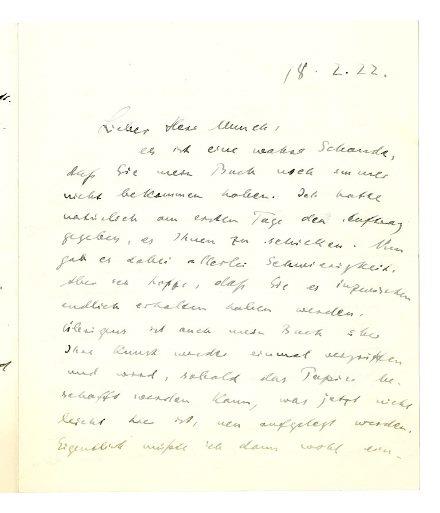 18. 2. 22.
Lieber Herr Munch!
es ist eine wahre Schande,
daß Sie mein Buch noch immer
nicht bekommen haben. Ich hatte
natürlich am ersten Tage den Auftrag
gegeben, es Ihnen zu schicken. Nun
gab es dabei allerlei Schwierigkeit.
Aber ich hoffe, daß Sie es inzwischen
endlich erhalten haben werden.
Übrigens ist auch mein Buch über
Ihre Kunst wieder einmal vergriffen
und wird, sobald das Papier be-
schafft werden kann, was jetzt nicht
leicht ist, neu aufgelegt werden.
Eigentlich müßte ich dann wohl ein-